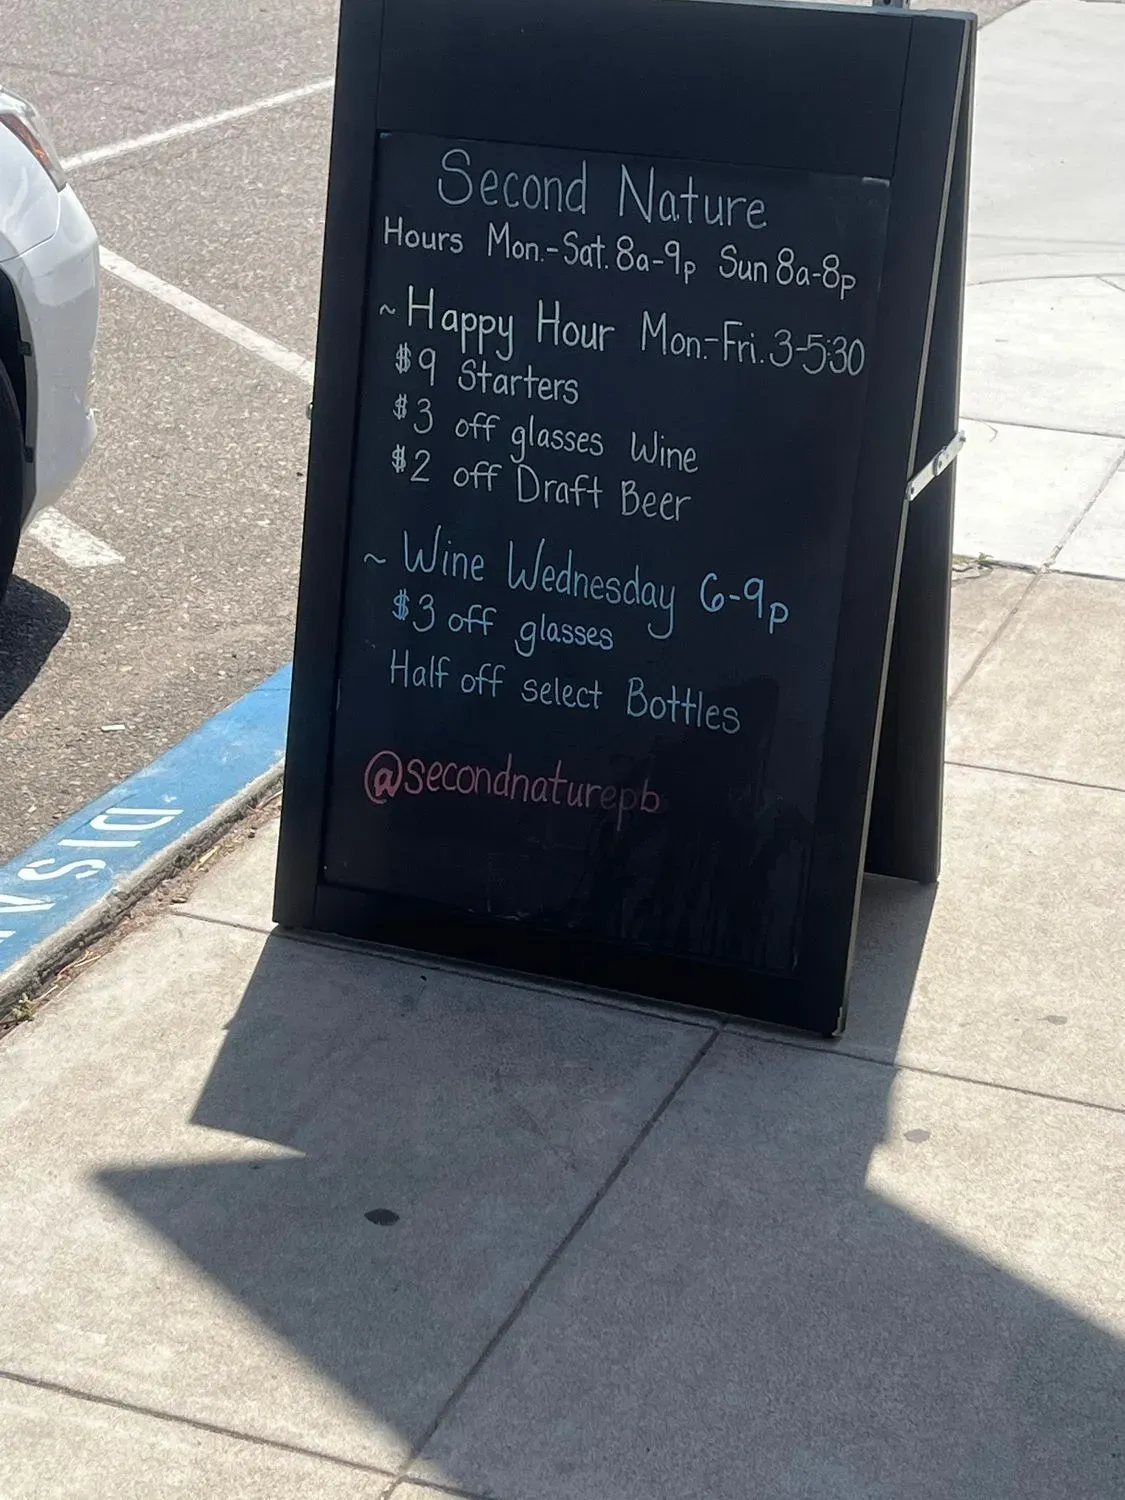 Second Nature
Hours Mon.-Sat. 8a-9p Sun 8a-8p
~ Happy Hour Mon.-Fri. 3-5:30
$9 Starters
$3 off glasses Wine
$2 off Draft Beer
~ Wine Wednesday 6-9p
$3 off glasses
Half off select Bottles
@secondnaturepb